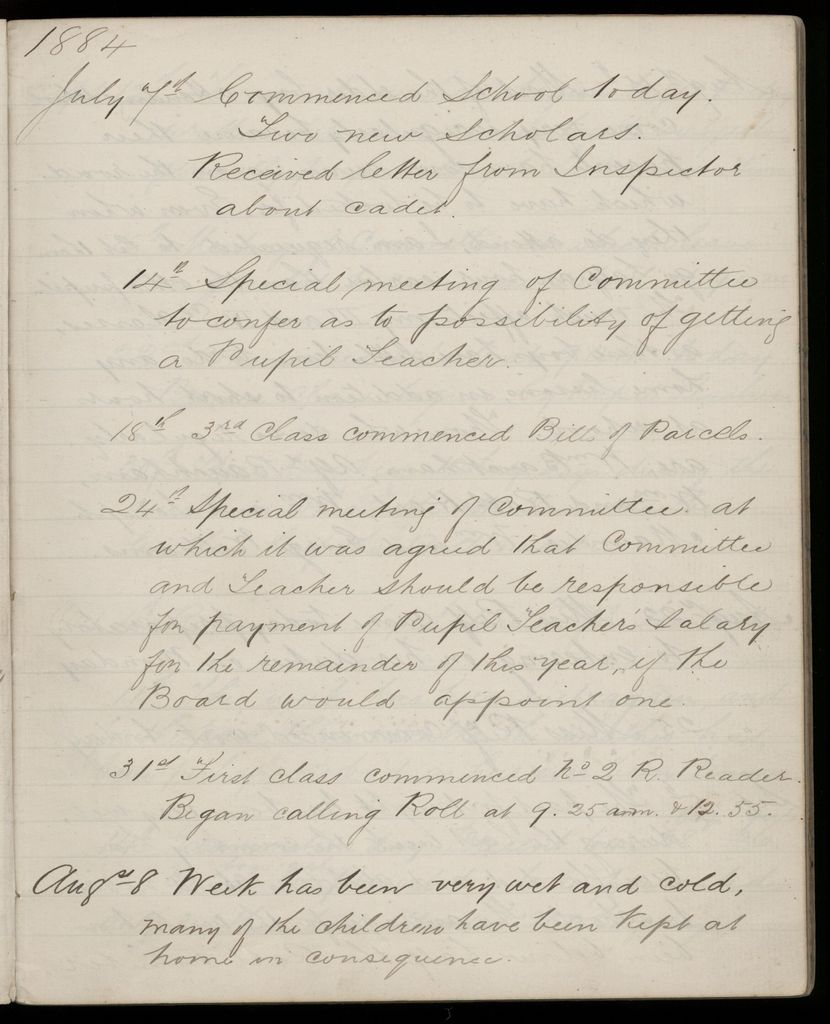 1884
July 7th Commenced School today.
Two new Scholars.
Received letter from Inspector
about cadet.
14th Special meeting of Committee
to confer as to possibility of getting
a Pupil Teacher.
18th 3rd Class commenced Bill of Parcels.
24th Special meeting of Committee at
which it was agreed that Committee
and Teacher should be responsible
for payment of Pupil Teacher's Salary
for the remainder of this year, if the
Board would appoint one.
31st First class commenced No 2 R. Reader.
Began calling Roll at 9.25 a.m. & 12.55.
Augst 8 Week has been very wet and cold,
many of the children have been kept at
home in consequence.